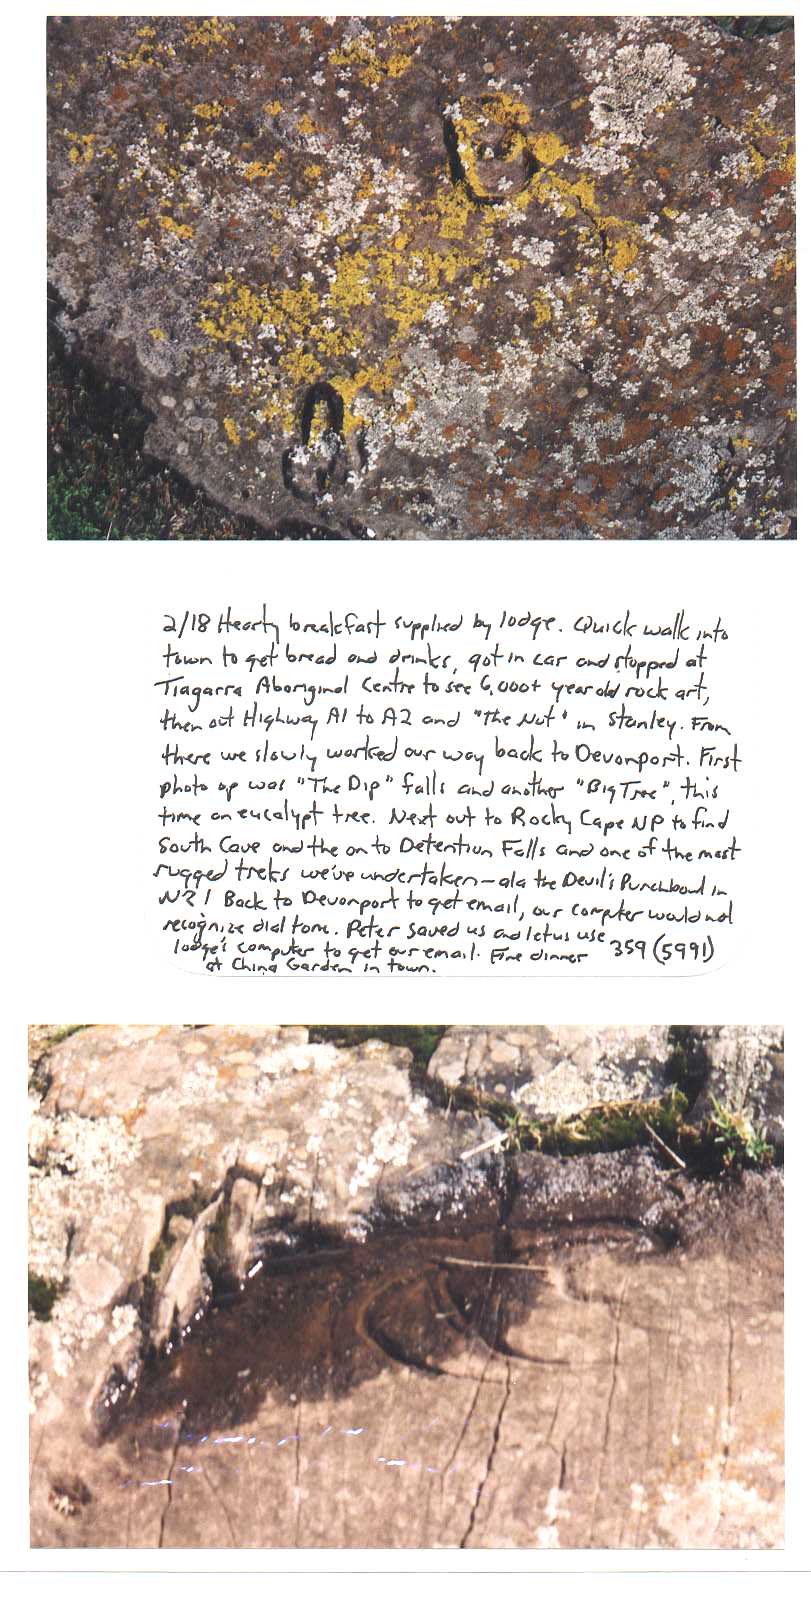 2/18 Hearty breakfast supplied by lodge. Quick walk into
town to get bread and drinks, got in car and stopped at
Tiagarra Aboriginal Centre to see 6,000+ year old rock art,
then out Highway A1 to A2 and "The Nut" in Stanley. From
there we slowly worked our way back to Devonport. First
photo op was "The Dip" falls and another "Big Tree", this
time an eucalypt tree. Next out to Rocky Cape NP to find
South Cave and the on to Detention Falls and one of the most
rugged treks we've undertaken - ala the Devil's Punchbowl in
NZ! Back to Devonport to get email, our computer would not
recognize dial tone. Peter saved us and let us use
lodge's computer to get our email. Fine dinner 359 (5991)
at China Garden in town.